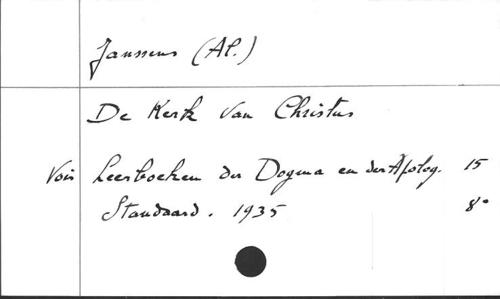 Janssens (Al.)
De Kerk van Christus
Voir Leerboeken der Dogma en der Apolog. 15
Standaard. 1935 8°